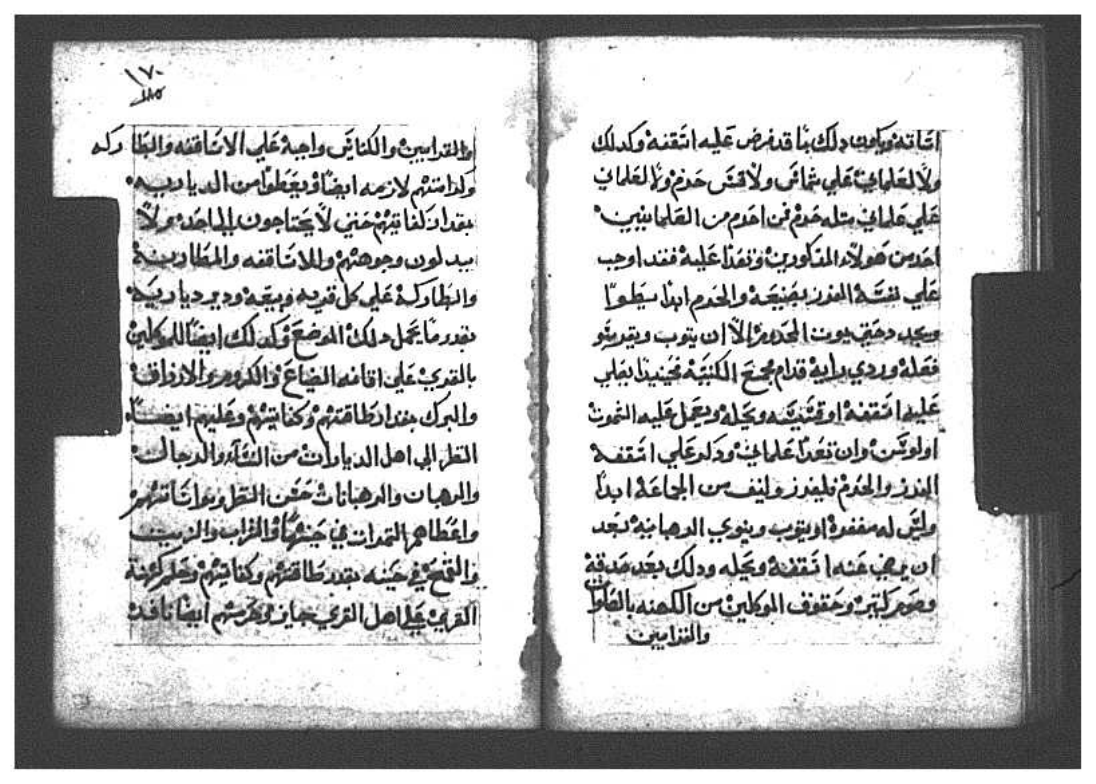 اساته ويكون دلك بنا قد فرض عليه اسقفه وكدلك
ولا لعلماني علي شماس ولا قس حرم ولا لعلماني
علي علماني مثله حرم فمن احرم من العلمانيين
احد من هولاء المدكورين وتعدا عليه فقد اوجب
علي نفسه الفرز بصنيعه والحرم ابدا
الا ان يتوب ويقر بسو
فعله وردي رايه قدام مجمع الكنيسه فحينيذ يصلي
عليه اسقفه او قسيسه ويحله ويعمل عليه
وان تعدا علماني ودلر علي اسقفه
الفرز والحرم فليفرز وليف من الجماعة ابدا
وليس له مغفرة او يتوب وينوي الرهبانيه بعد
ان يرضي عنه اسقفه ويحله ودلك بعد صدقه
وصوم كثير وحقوق الموكلين من الكهنه بالصلوا
والقرابين
١٧٠
١٨٥
والقرابين والكنايس واجبة علي الاساقفه والبطا ركه
وكرامتهم لازمه ايضا ويعطوا من الدياريه
بقدر كفايتهم حتي لا يحتاجون الي احد ولا
يبدلون وجوههم وللاساقفه والمطارنة
والبطاركة علي كل قريه وبيعه ودير دياريه
بقدر ما يحمل دلك الموضع وكدلك ايضا للموكلين
بالقري علي اقامه الضياع والكروم والارزاق
والبرك بقدر طاقتهم وكفايتهم وعليهم ايضا
النظر الي اهل الديارات من النساء والرجال
والرهبان والرهبانات حسن النظر
واعطاهم الثمرات في حينها والشراب والزيت
والقمح في حينه بقدر طاقتهم وكفايتهم وحكم كهنة
القري علي اهل القري جايز وحرمهم ايضا نافد